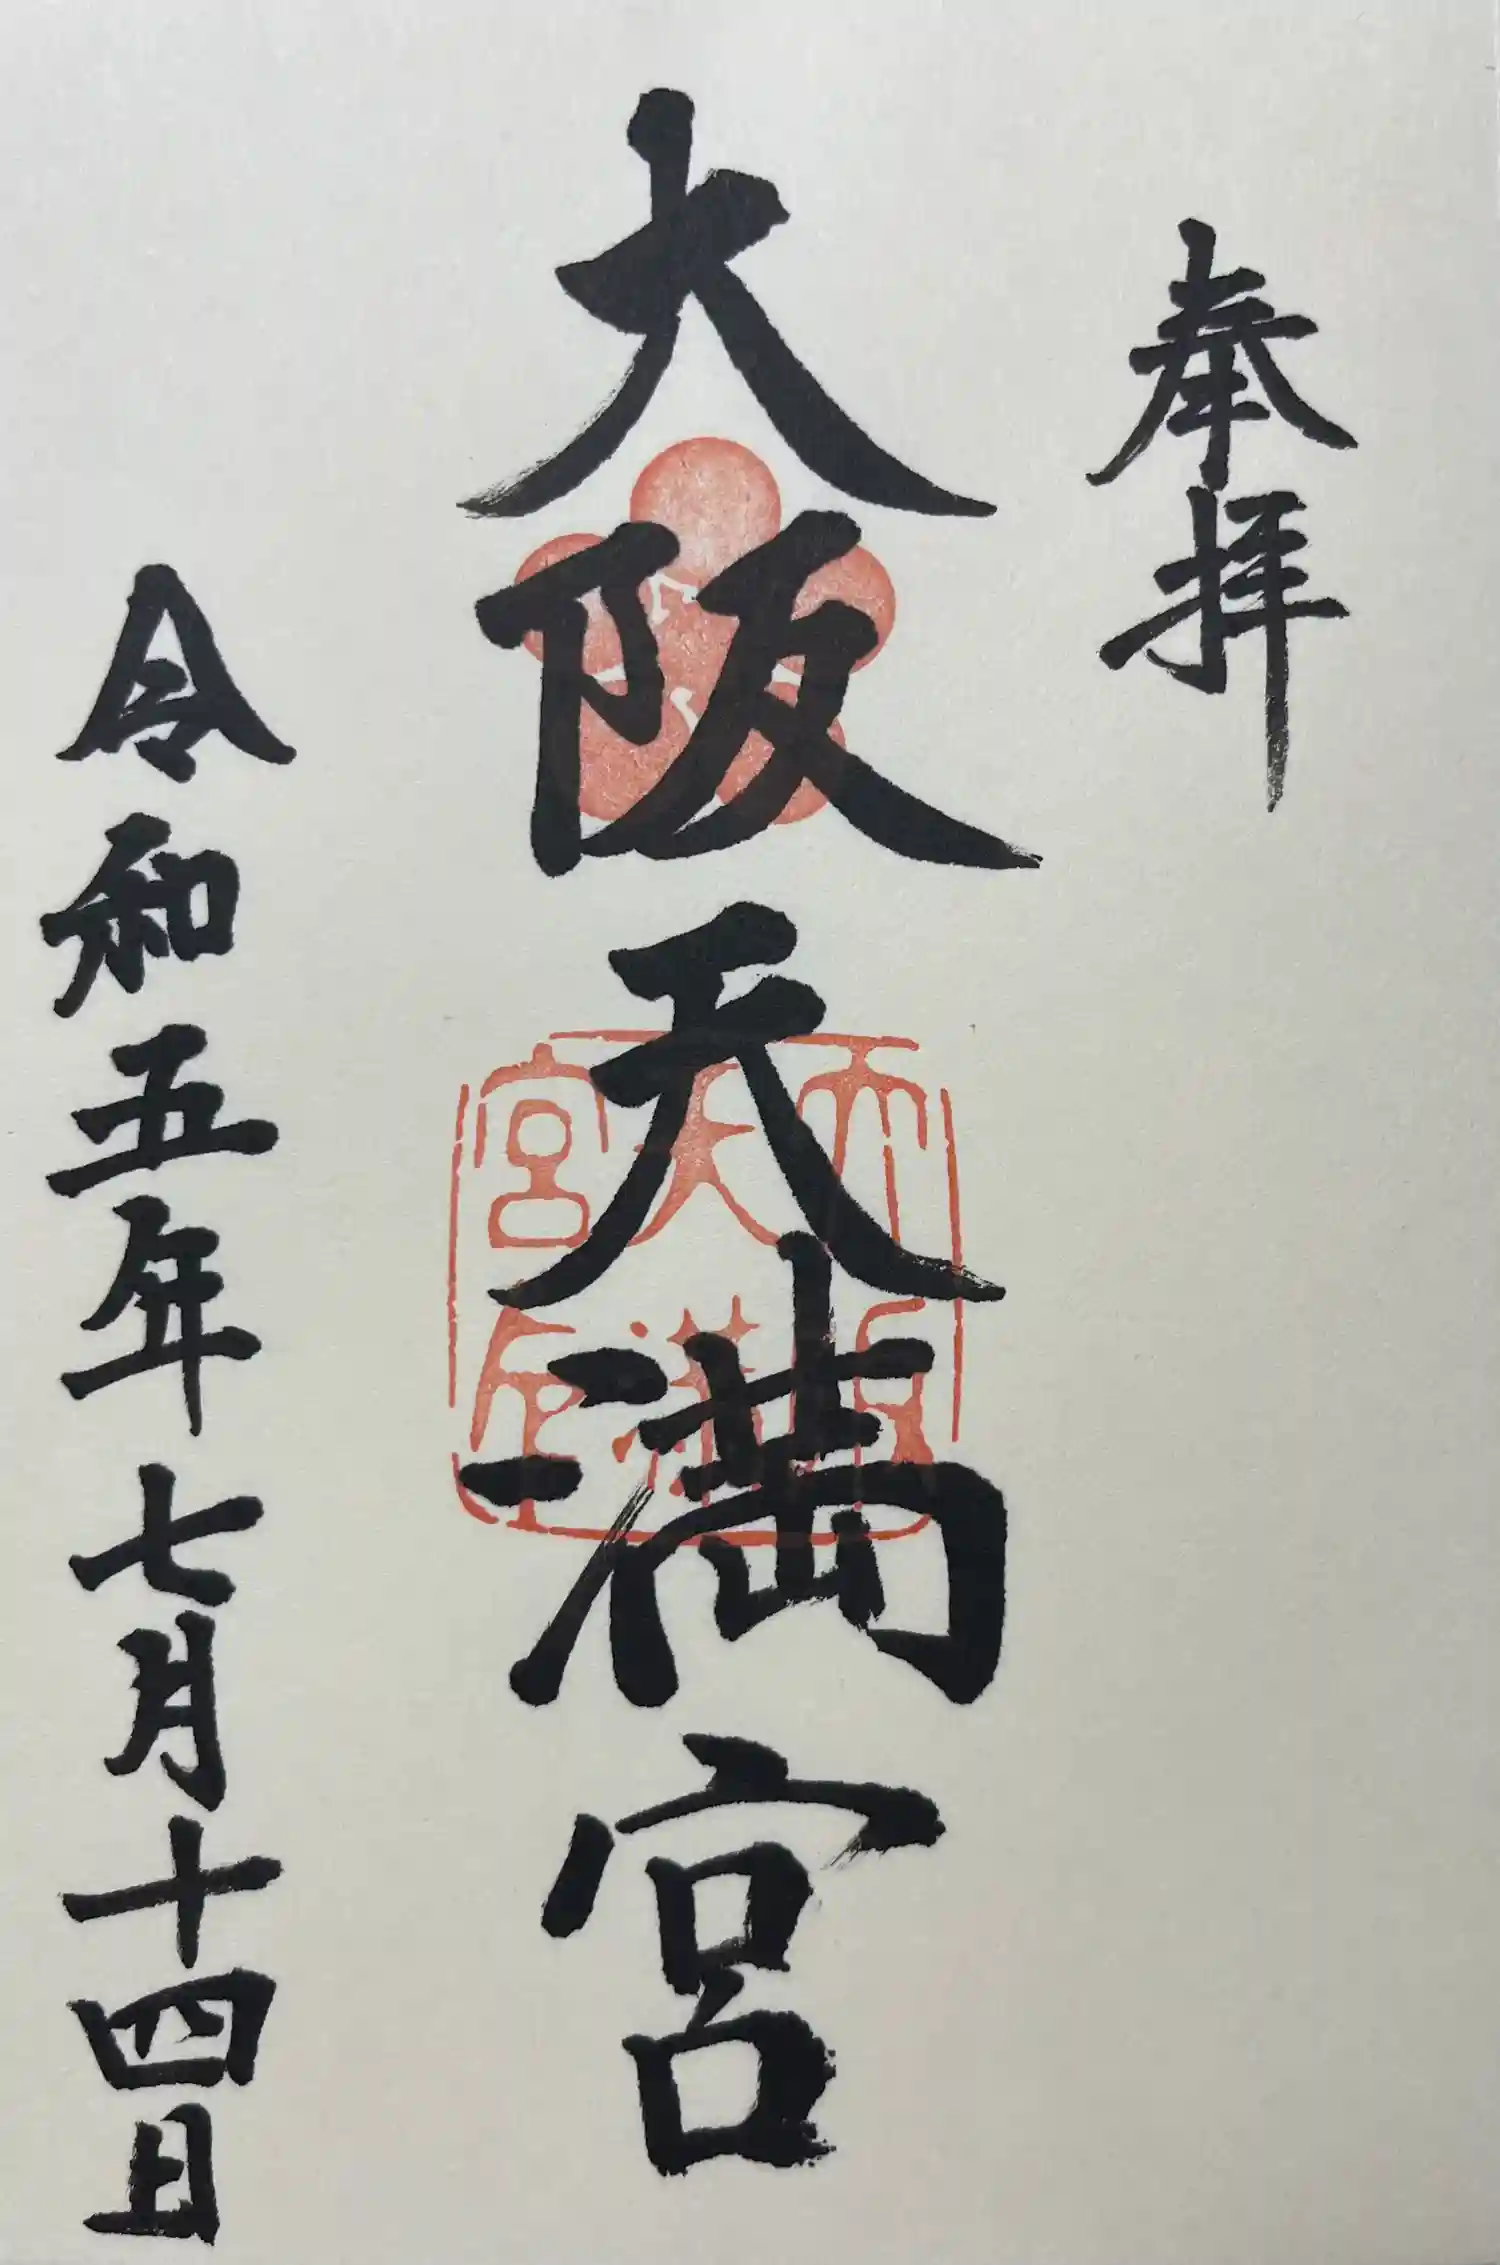 奉拝
大阪天満宮
令和五年七月十四日
大阪
天満
宮印